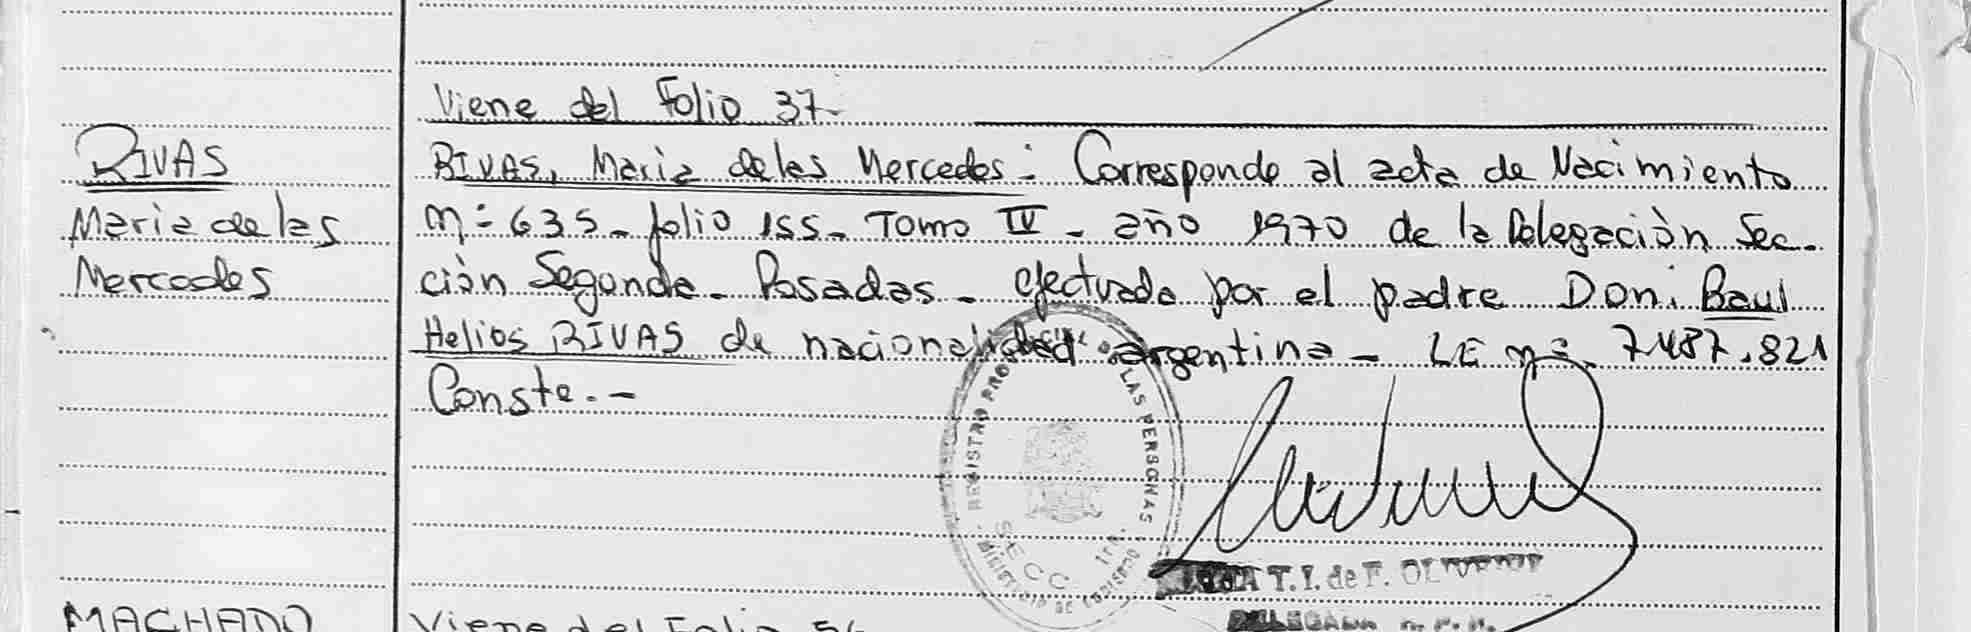 Viene del Folio 37-
RIVAS
Maria de las
Mercedes
RIVAS, Maria de las Mercedes: Corresponde al acta de Nacimiento
nº 635- folio 155- Tomo IV - año 1970 de la Delegaciòn Sec-
ciòn Segunda- Posadas- efectuada por el padre Don: Raul
Helios RIVAS de nacionalidad argentina- LE nº 7487.821
Conste.-
REGISTRO PROV LAS PERSONAS
SECC 1ra
MINISTERIO DE GOBIERNO
T. I. de F.
DELEGADA
MACHADO
Viene del Folio 56